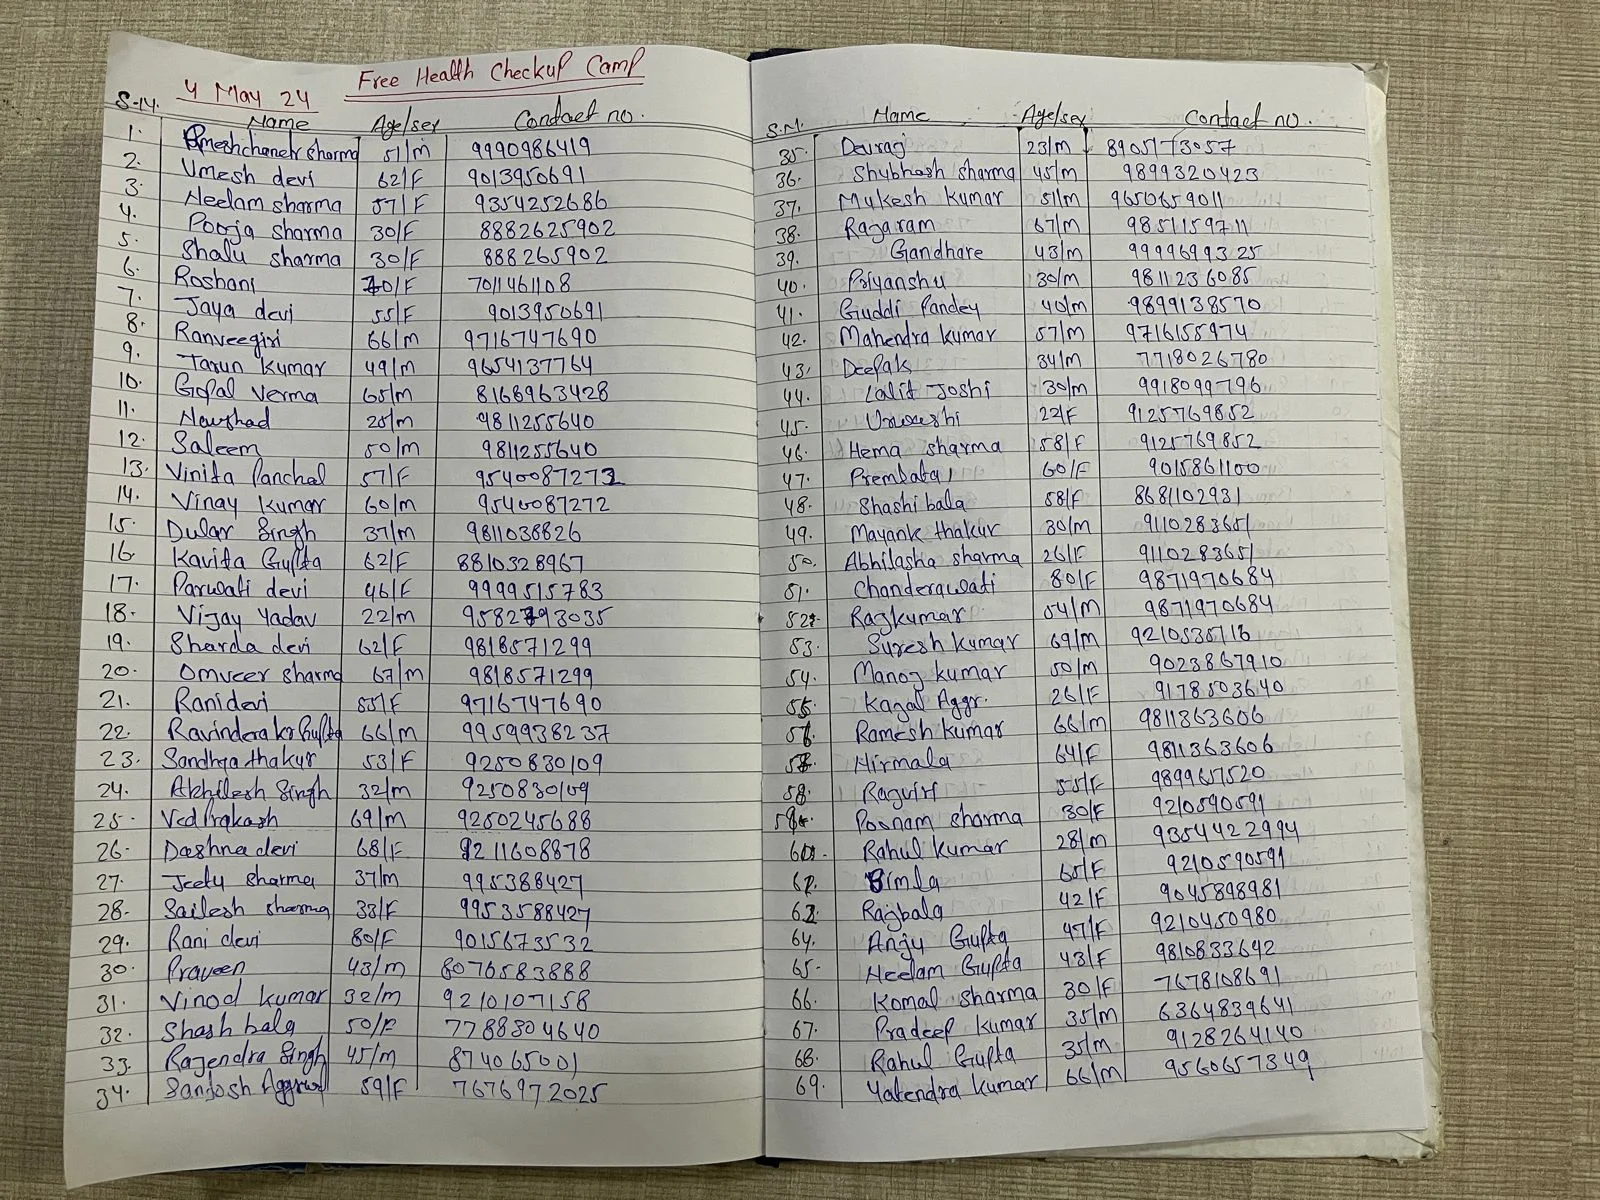 4 May 24 Free Health Checkup Camp
S.N. Name Age/sex Contact no.
1. Omeshchandr sharma 51/m 9990986419
2. Umesh devi 62/F 9013950691
3. Neelam sharma 57/F 9354252686
4. Pooja sharma 30/F 8882625902
5. Shalu sharma 30/F 888265902
6. Roshani 70/F 7011461108
7. Jaya devi 55/F 9013950691
8. Ranveegiri 66/m 9716747690
9. Tarun kumar 49/m 9654137764
10. Gopal Verma 65/m 8168963428
11. Naushad 28/m 9811255640
12. Saleem 50/m 9811255640
13. Vinita Panchal 57/F 9540087272
14. Vinay Kumar 60/m 9540087272
15. Dular Singh 37/m 9811038826
16. Kavita Gupta 62/F 8810328967
17. Parwati devi 46/F 9999515783
18. Vijay Yadav 22/m 9582793035
19. Sharda devi 62/F 9818571299
20. Omveer sharma 67/m 9818571299
21. Rani devi 55/F 9716747690
22. Ravindera kr Gupta 66/m 9959938237
23. Sandhya thakur 53/F 9250830109
24. Akhilesh Singh 32/m 9250830109
25. Ved Prakash 69/m 9250245688
26. Dashna devi 68/F 9211608878
27. Jeetu Sharma 37/m 995388427
28. Sailesh sharma 33/F 9953588427
29. Rani devi 80/F 9015673532
30. Praveen 43/m 8076583888
31. Vinod kumar 32/m 9210107158
32. Shash bala 50/F 7788304640
33. Rajendra Singh 45/m 874065001
34. Santosh Aggrwal 59/F 7676972025
S.N. Name Age/sex Contact no.
35. Devraj 23/m 8905173057
36. Shubhash sharma 45/m 9899320423
37. Mukesh kumar 51/m 9650659011
38. Rajaram 67/m 9851159711
39. Gandhare 43/m 9999699325
40. Priyanshu 30/m 9811236085
41. Guddi Pandey 40/m 9899138570
42. Mahendra kumar 57/m 9716155974
43. Deepak 34/m 7718026780
44. Lalit Joshi 30/m 9918099796
45. Urvashi 22/F 9125769852
46. Hema sharma 58/F 9125769852
47. Premlata 60/F 9015861100
48. Shashi bala 58/F 8681102931
49. Mayank thakur 30/m 9110283651
50. Abhilasha sharma 26/F 9110283651
51. Chanderawati 80/F 9871970684
52. Rajkumar 54/m 9871970684
53. Suresh kumar 69/m 9210535118
54. Manoj kumar 50/m 9023867910
55. Kajal Aggr. 26/F 9178503640
56. Ramesh kumar 66/m 9811363606
57. Nirmala 64/F 9811363606
58. Raguiri 55/F 9899657520
59. Poonam sharma 30/F 9210590591
60. Rahul kumar 28/m 9354422994
61. Bimla 65/F 9210590591
62. Rajbala 42/F 9045898981
64. Anju Gupta 47/F 9210450980
65. Neelam Gupta 43/F 9810833642
66. Komal sharma 30/F 7678108691
67. Pradeep kumar 35/m 6364839641
68. Rahul Gupta 35/m 9128264140
69. Yatendra kumar 66/m 9560657349